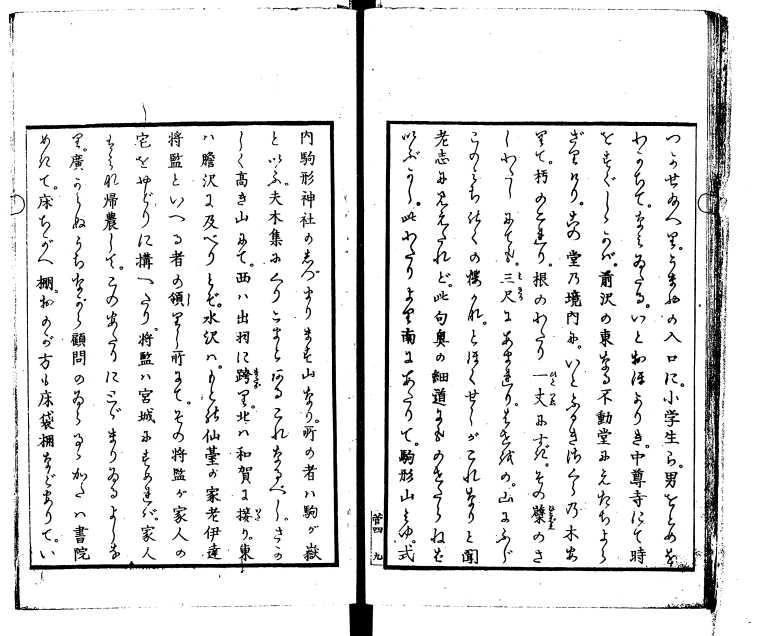 の入口に。小学生ら。男をとめな
わかちて。なみゐたる。いと 中尊寺にて時
をすぐしゝかバ。前沢の東なる不動堂にえたちよら
ざりけり。この堂の境内に。いとふるきさくらの木あ
りて。朽のこれり。根のわたり一丈にすぎ。その蘖のさ
しわたしにても。三尺にあまれり。はせをの。山にふぢ
とほくせしがこれなりと聞
老志にみえたれど。此句奥の細道にものせたらねば
いぶかし。此わたりより南にあたりて。駒形山みゆ。式
菅四 九
内駒形神社のしづまります山なり。所の者ハ駒が嶽
といふ。夫木集にくりこまとあるこれなるべし。さか
しく高き山にて。西ハ出羽に跨り。北ハ和賀に接り。東
ハ膽沢に及べりとぞ。水沢ハ。もと 仙臺が家老伊達
将監といへる者の領りし所にて。その将監が家人の
宅をやどりに構へたり。将監ハ宮城にすめれバ。家人
帰農して。このあたりにとゞまりゐるよしな
り。廣からぬうちながら顧問のゐらるゝかたハ書院
めきて。床ちがへ棚。おのが方も床袋棚などありて。い